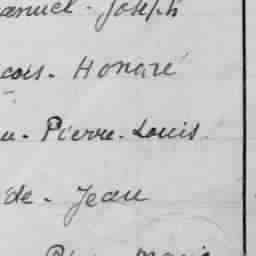 anuel. Joseph
cois. Honoré
u. Pierre. Louis
de. Jean